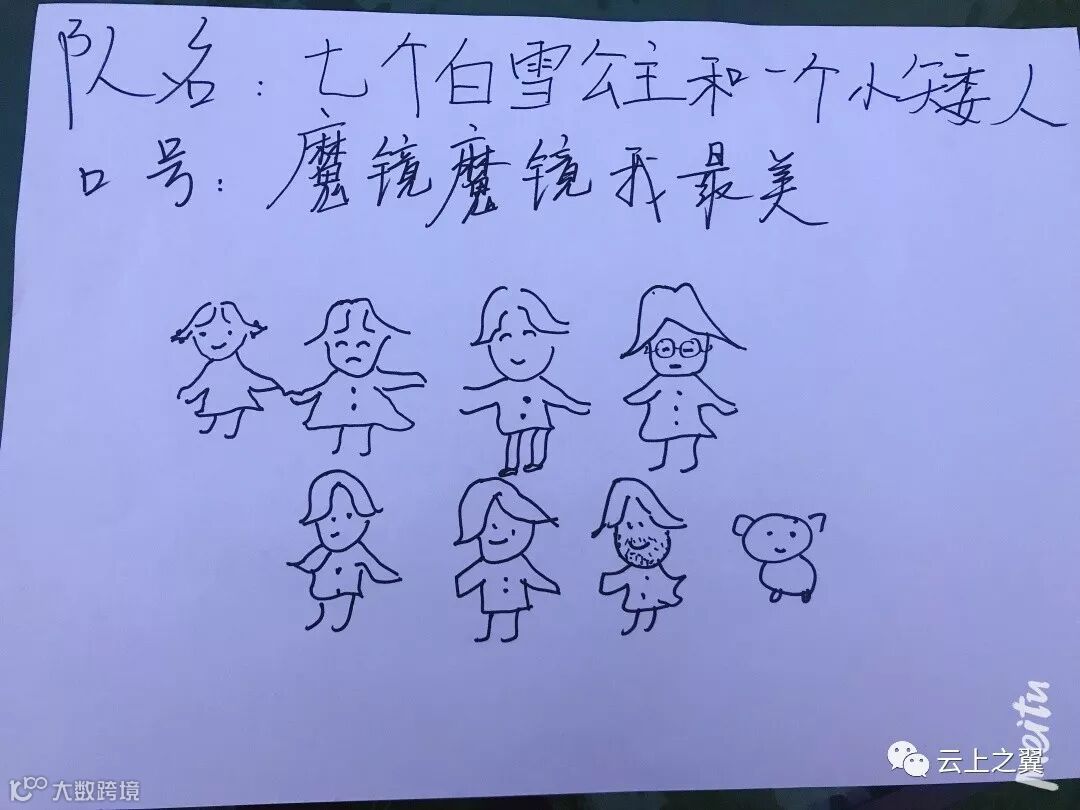 队名：七个白雪公主和一个小矮人
口号：魔镜魔镜我最美
Meitu
云上之翼
大数跨境